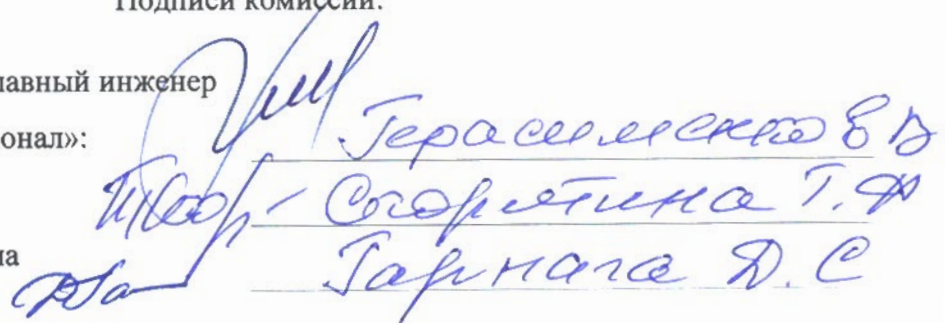 Подписи комиссии:
лавный инженер
онал»: Герасименко Е В
Т. Ф
ла
Гарнага Д. С